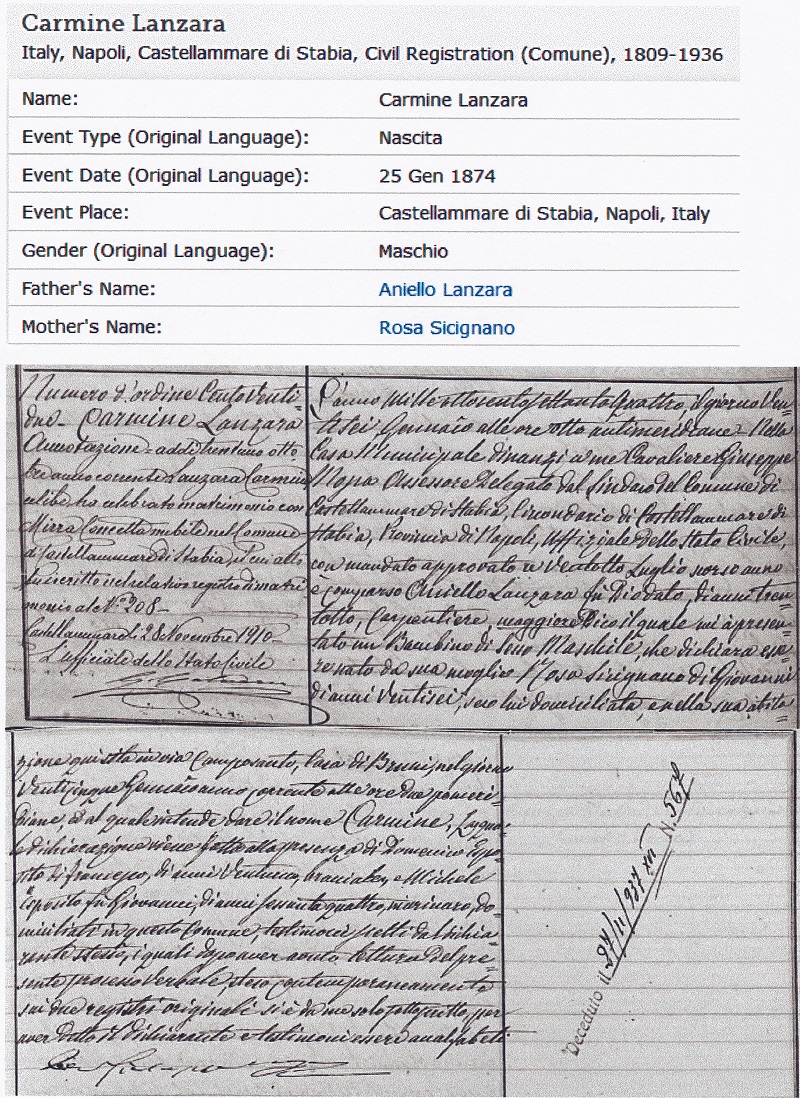 Carmine Lanzara
Italy, Napoli, Castellammare di Stabia, Civil Registration (Comune), 1809-1936
Name: Carmine Lanzara
Event Type (Original Language): Nascita
Event Date (Original Language): 25 Gen 1874
Event Place: Castellammare di Stabia, Napoli, Italy
Gender (Original Language): Maschio
Father's Name: Aniello Lanzara
Mother's Name: Rosa Sicignano
Numero d'ordine Cento Venti=
due - Carmine Lanzara
Annotazione = addì trentuno otto
bre anno corrente Lanzara Carmine
celibe ha celebrato matrimonio con
Mirra Concetta nubile nel Comune
di Castellammare di Stabia,
inscritto nel relativo registro di matri
monio al N.º 208 -
Castellammare di 28 Novembre 1910
L'uffiziale dello Stato Civile
L'anno mille ottocento settanta quattro, il giorno Ven=
tisei Gennaio alle ore otto antimeridiane = Nella
Casa Municipale dinanzi a me Cavaliere Giuseppe
Assessore Delegato dal Sindaco del Comune di
Castellammare di Stabia, Circondario di Castellammare di
Stabia, Provincia di Napoli, Uffiziale dello Stato Civile,
con mandato approvato Ventotto Luglio scorso anno
è comparso Aniello Lanzara fu Diodato, di anni tren=
totto, Carpentiere, maggiore il quale mi à presen=
tato un Bambino di Sesso Maschile, che dichiara esse=
re nato da sua moglie Rosa Sicignano di Giovanni
di anni Ventisei, seco lui domiciliata, e nella sua abita=
zione qui sita in via Camposanto, Casa di Bruni, nel giorno
Venticinque Gennaio anno corrente alle ore due pomeri=
diane, ed al quale intende dare il nome Carmine, La qua=
le dichiarazione viene fatta alla presenza di Domenico Espo=
sito di Francesco, di anni Ventuno, bracciale, e Michele
Esposito fu Giovanni, di anni sessanta quattro, marinaro, do=
miciliati in questo Comune, testimoni scelti dal dichia=
rante stesso, i quali dopo aver avuto lettura del pre=
sente processo verbale, steso contemporaneamente
sui due registri originali si è da me solo sottoscritto, per
aver detto il dichiarante e testimoni essere analfabeti
Deceduto il 27/11/937 XVI N. 567